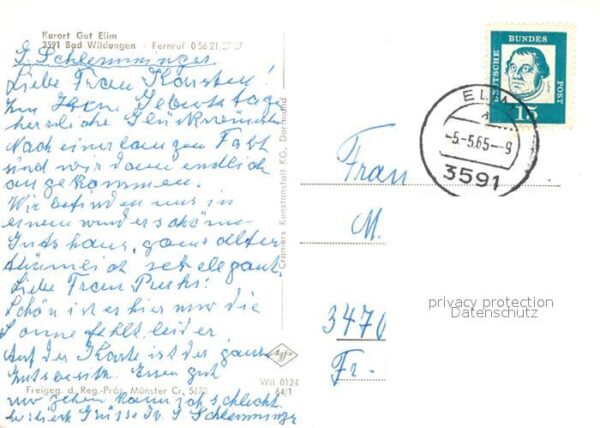 Kurort Gut Elim
3591 Bad Wildungen - Fernruf 0 56 21,
G. Schlemminger.
Liebe Frau Karsten!
Zu Ihrem Geburtstage
herzliche Glückwünsche
Nach einer langen Fahrt
sind wir dann endlich
angekommen.
Wir befinden uns in
einem wunderschönen
Gutshaus, ganz alter
tümlich sehr elegant.
Liebe Frau
Schön ist es hier nur die
Sonne fehlt leider.
Auf der Karte ist der ganze
Gutsbesitz. Essen gut
nur gehen kann ich schlecht.
herzliche Grüße Ihr G Schlemminger
Freigeg. d. Reg.-Präs. Münster Cr. 5670
Cramers Kunstanstalt KG, Dortmund
Agfa
Wil 0124
64/1
DEUTSCHE
BUNDES
POST
15
-5.-5.65--9
3591
Frau
M.
3470
Fr.
privacy protection
Datenschutz